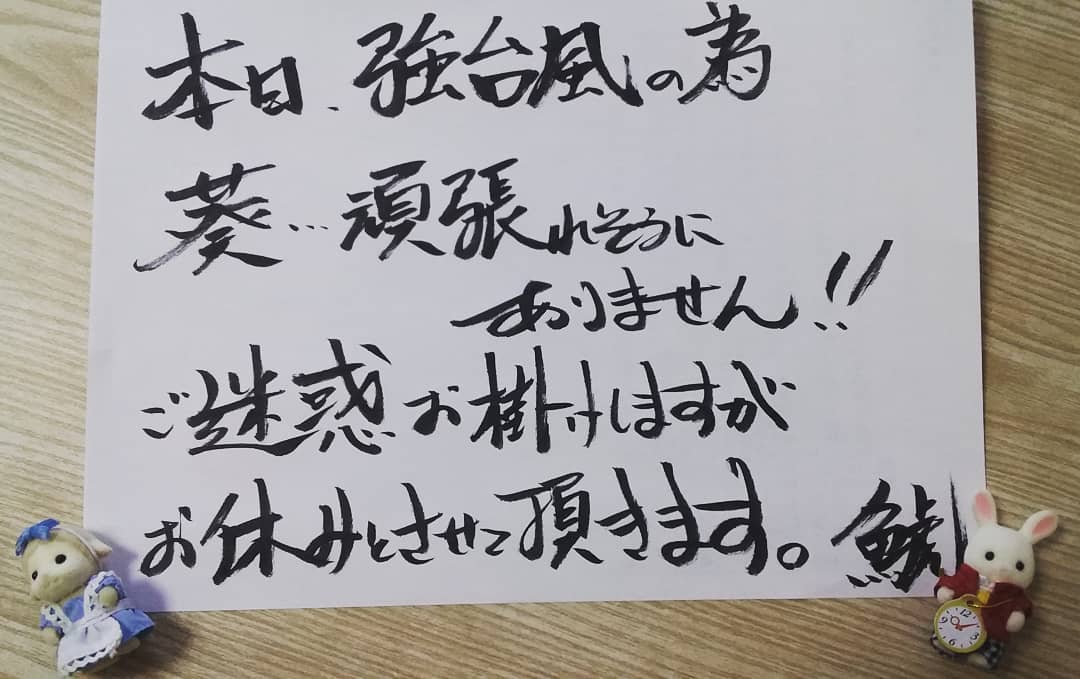 本日、強台風の為
葵…頑張れそうに
ありません!!
ご迷惑お掛けしますが
お休みとさせて頂きます。
12
9 3
6